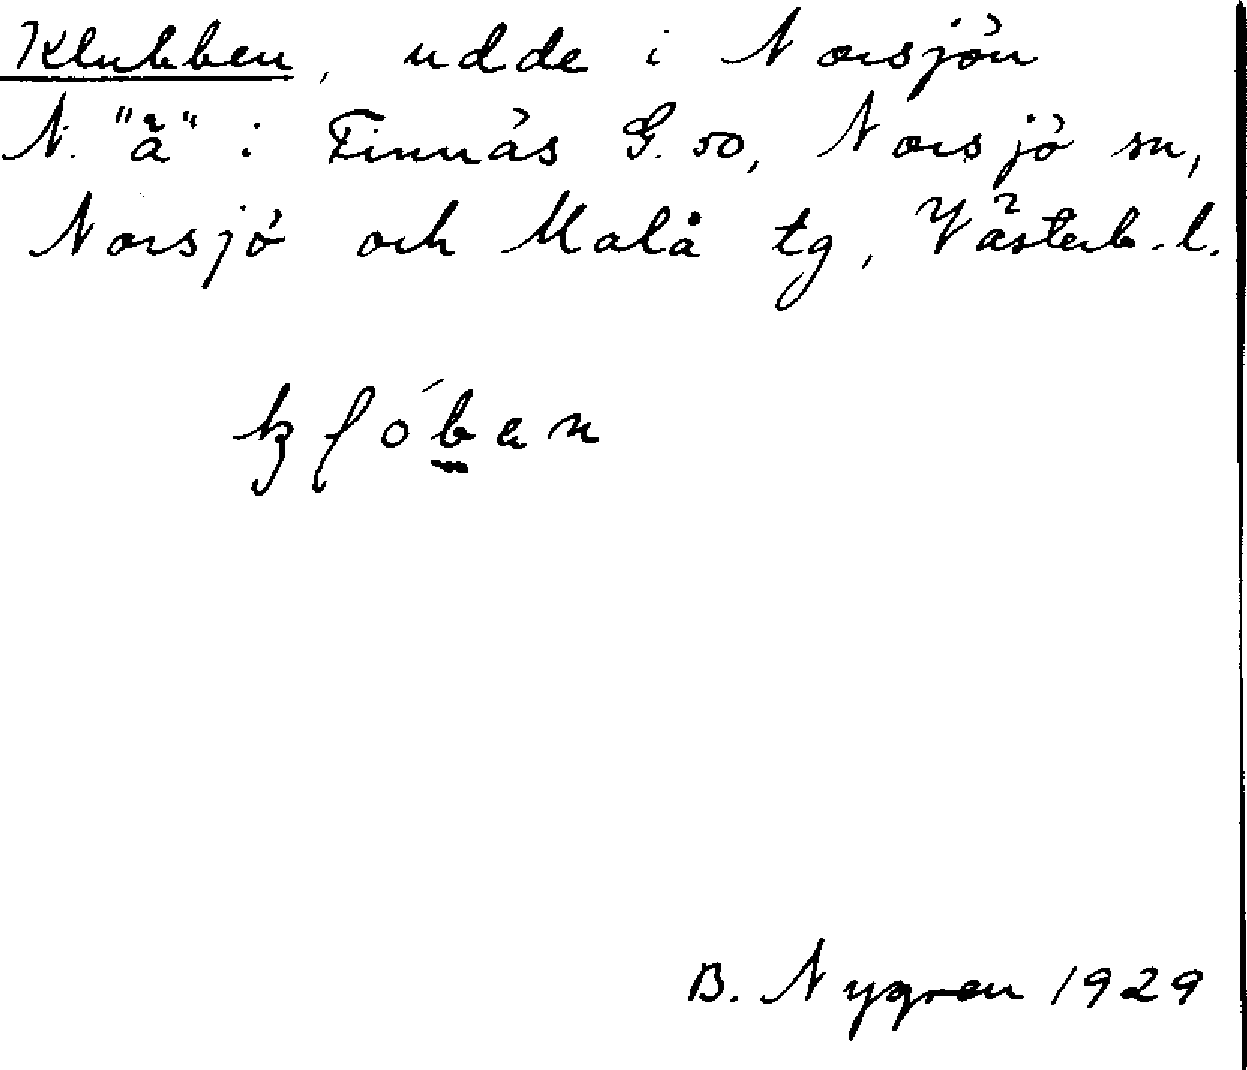 Klubben, udde i Norsjön
N. "ä" i Finnäs G. 50, Norsjö sn,
Norsjö och Malå tg, Västerb. l.
klóban
B. Nygren 1929